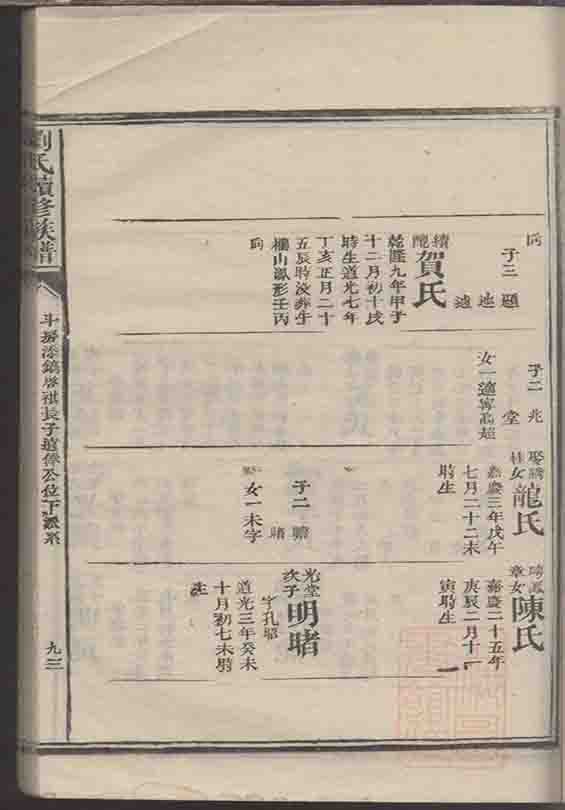 劉氏續修族譜
斗房添鎬房祺長子遠
公位下派系
九三
向
子三 題
迪
遠
續
配
賀氏
乾隆九年甲子
十二月初十戌
時生道光七年
丁亥正月二十
五辰時歿葬牛
欄山鳳形壬丙
向
子二 兆
堂
女一適寧高超
娶
桂女
龍氏
嘉慶三年戊午
七月二十二未
時生
子二 贍
睹
女一未字
娉鳳
章女
陳氏
嘉慶二十五年
庚辰二月十一
寅時生
光堂
次子
明睹
字孔昭
道光三年癸未
十月初七未時
生